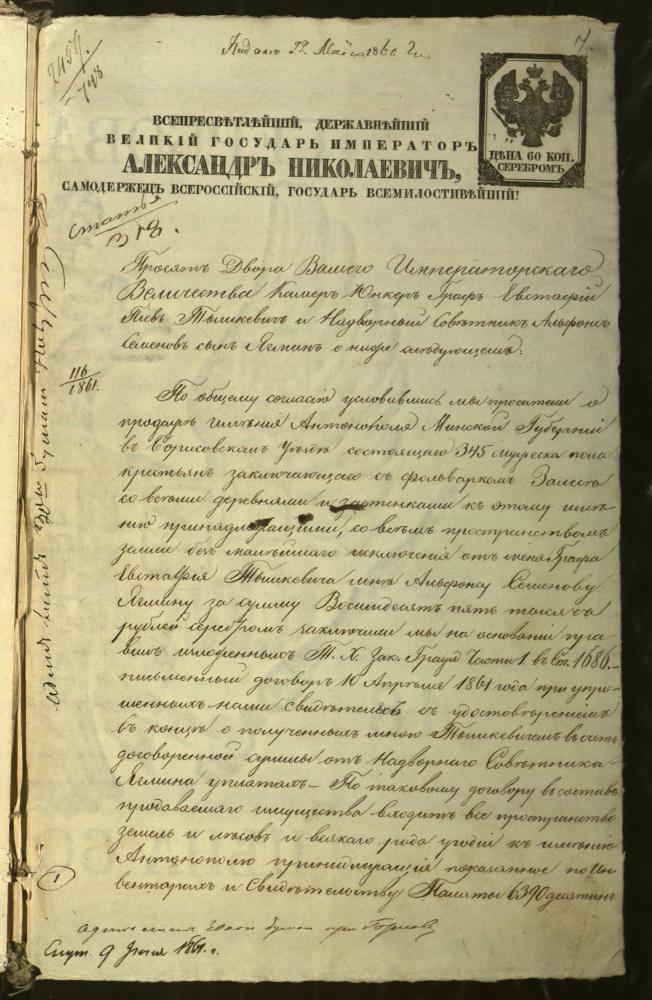 Подано 22 Мая 1861 г.
7
2457/748
ВСЕПРЕСВѢТЛѢЙШІЙ, ДЕРЖАВНѢЙШІЙ
ВЕЛИКІЙ ГОСУДАРЬ ИМПЕРАТОРЪ
АЛЕКСАНДРЪ НИКОЛАЕВИЧЪ,
САМОДЕРЖЕЦЪ ВСЕРОССІЙСКІЙ, ГОСУДАРЬ ВСЕМИЛОСТИВѢЙШІЙ!
ЦѢНА 60 КОП.
СЕРЕБРОМЪ
статья
318.
Просятъ Двора Вашего Императорскаго
Величества Камеръ Юнкеръ Графъ Евстафій
Тышкевичъ и Надворный Совѣтникъ Альфонсъ
Семеновъ сынъ Ягминъ о нижеслѣдующемъ:
116/1861.
По общему согласію условившись мы просители о
продажѣ имѣнія Антонополя Минской Губерніи
въ Борисовскомъ Уѣздѣ состоящаго 345 мужеска пола
крестьянъ заключающаго съ фольваркомъ Залесье
со всѣми деревнями и застенками къ этому имѣ-
нію принадлежащими, со всѣмъ пространствомъ
земли безъ малѣйшаго исключенія отъ меня Графа
Евстафія Тышкевича мнѣ Альфонсу Семенову
Ягмину за сумму Восемьдесятъ пять тысячъ
рублей серебромъ заключили мы на основаніи пра-
вилъ изложенныхъ Т. X. Зак. Гражд. Части 1. въ Ст. 1686.
письменный договоръ 10 Апрѣля 1861 года при упро-
шенныхъ нами свидѣтеляхъ съ удостовѣреніемъ
въ концѣ о полученныхъ мною Тышкевичемъ въ счетъ
договоренной суммы отъ Надворнаго Совѣтника
Ягмина уплатахъ. – По таковому договору въ составъ
продаваемаго имущества входитъ все пространство
земель и лѣсовъ и всякаго рода угодій къ имѣнію
Антонополю принадлежащія показанное по Ин-
вентарямъ и Свидѣтельству Палаты 6390 десятинъ
1
9 Іюня 1861 г.